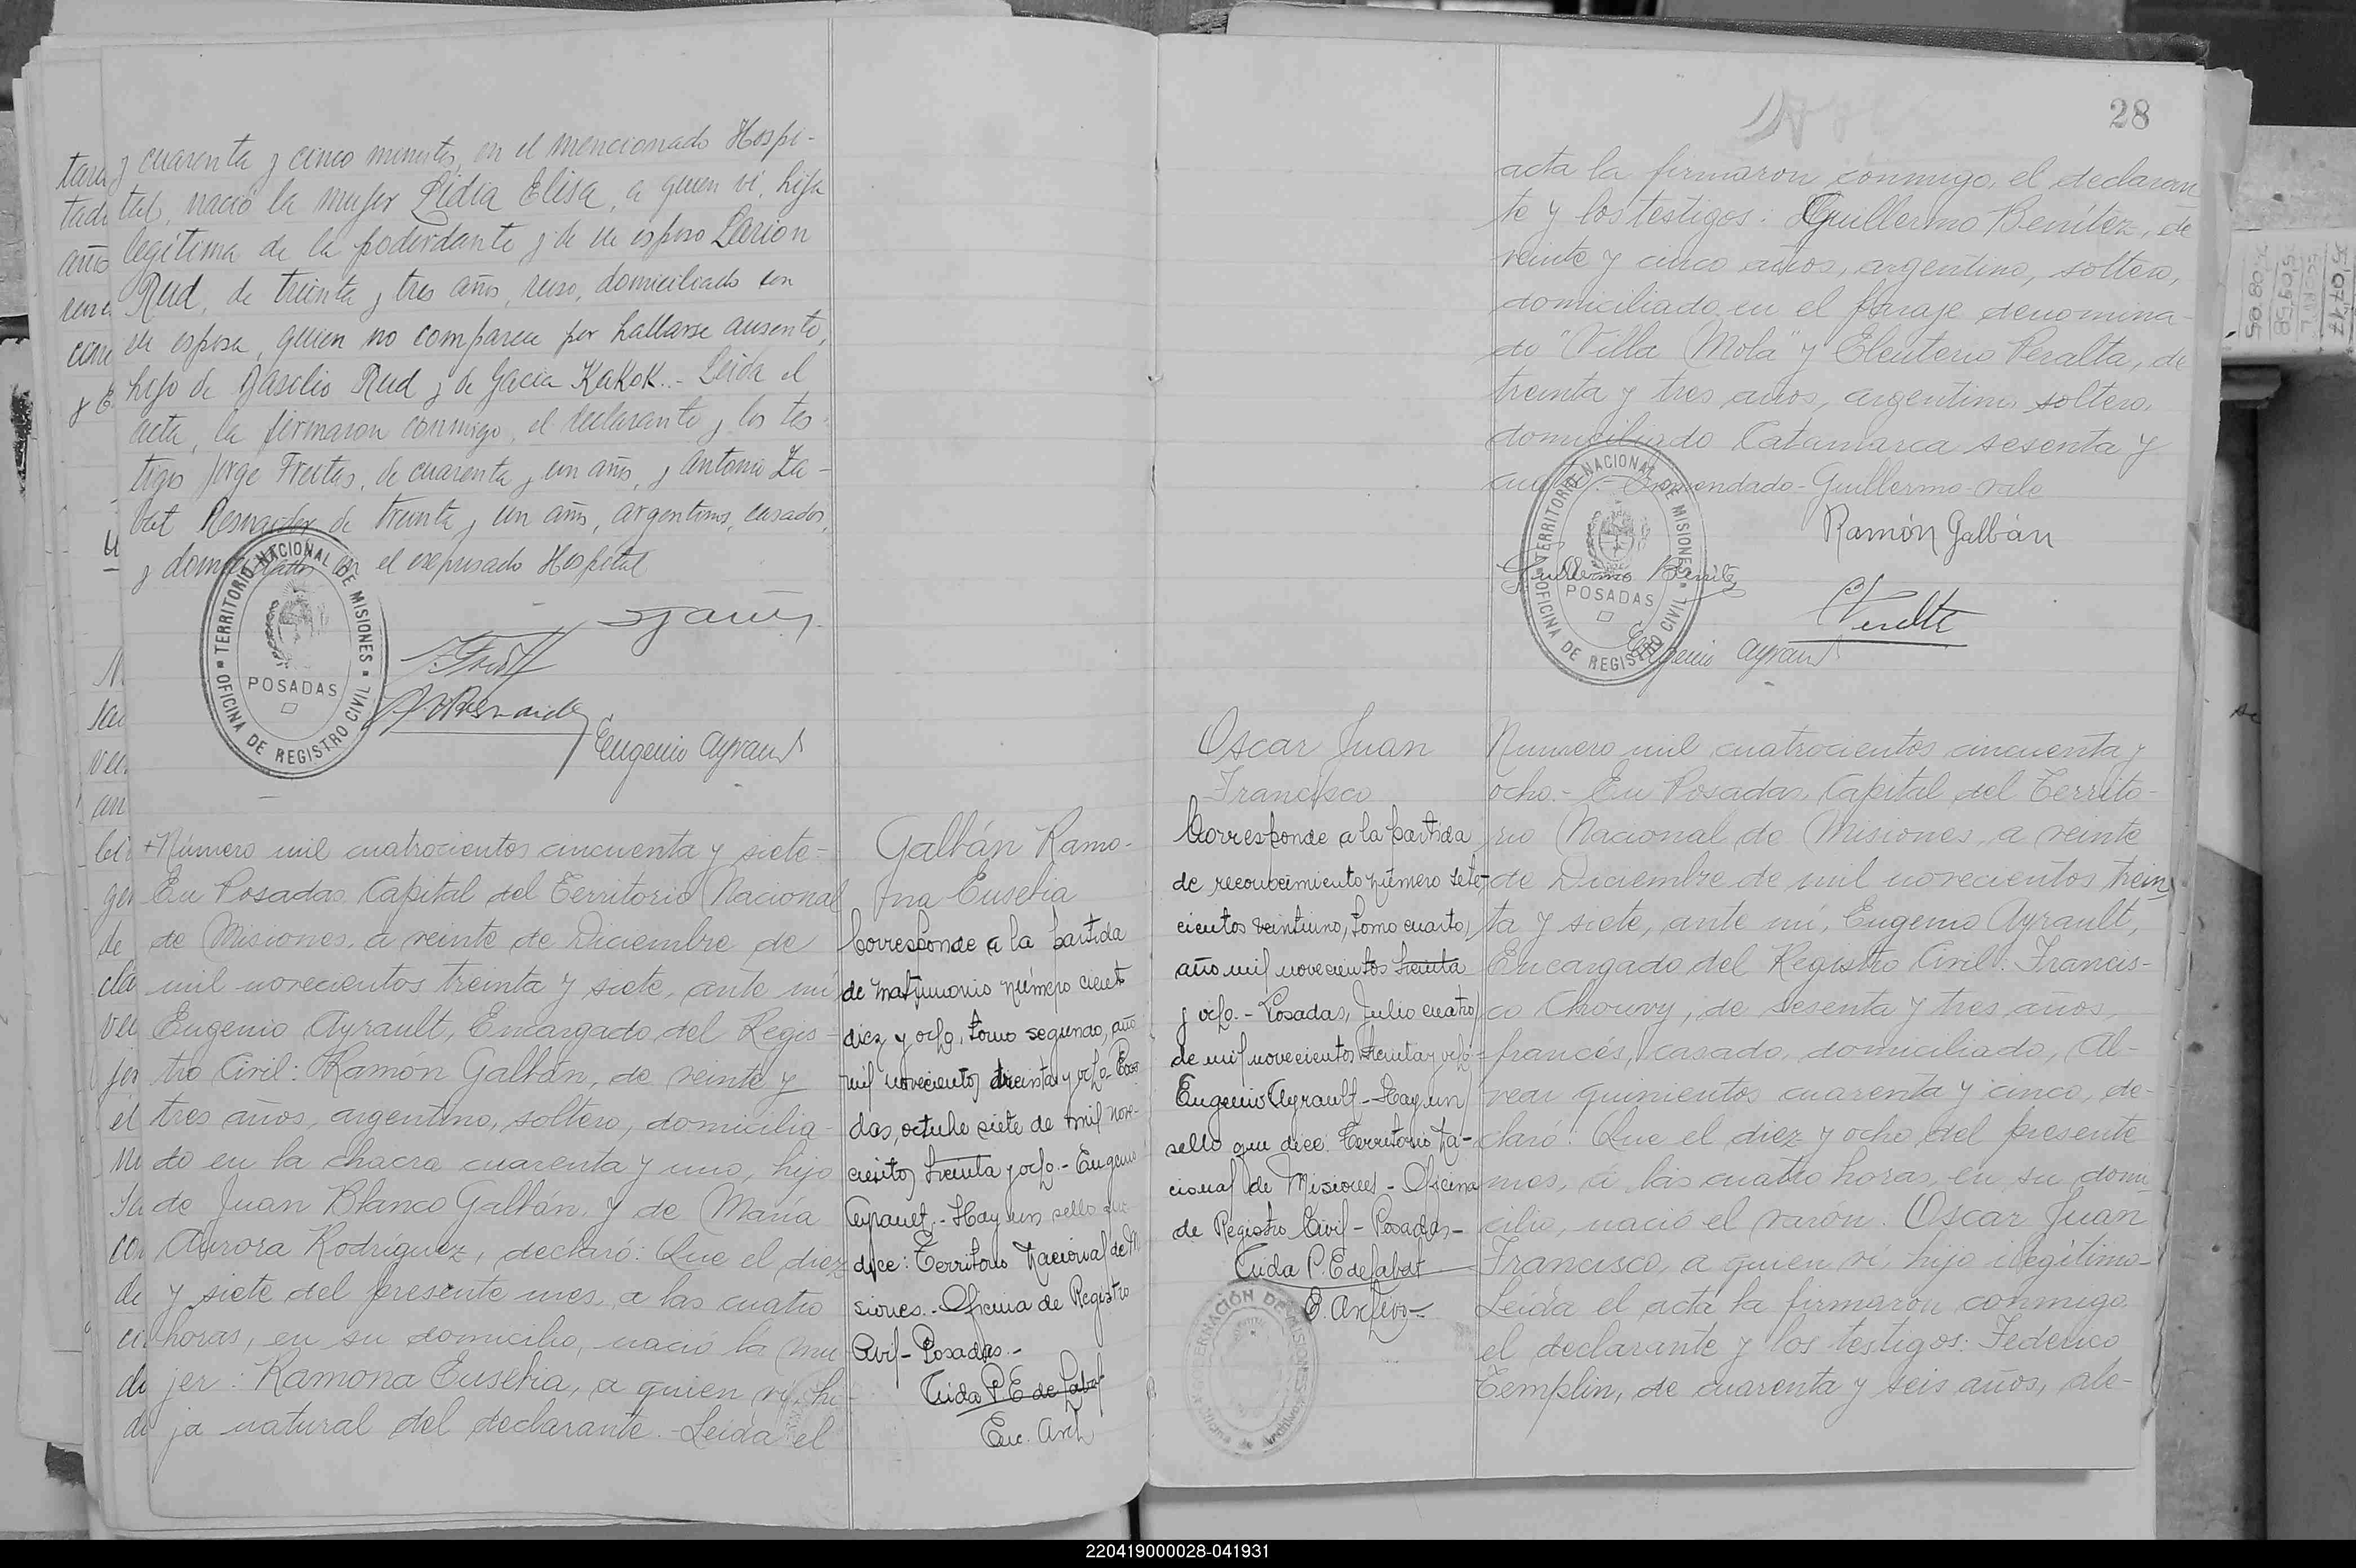 y cuarenta y cinco minutos, en el mencionado Hospi-
tal, nació la mujer Lidia Elisa, a quien ví, hija
legítima de la poderdante y de su esposo Larion
Rud, de treinta y tres años, ruso, domiciliado con
su esposa, quien no comparece por hallarse ausente,
hijo de Basilio Rud y de Gacia Kakok.- Leída el
acta, la firmaron conmigo, el declarante y los tes-
tigos Jorge Freitas, de cuarenta y un años, y Antonio La-
bat Resnaider de treinta y un años, argentinos, casados,
y domiciliados en el expresado Hospital
TERRITORIO NACIONAL DE MISIONES
POSADAS
OFICINA DE REGISTRO CIVIL
Eugenio Ayrault
Número mil cuatrocientos cincuenta y siete-
En Posadas, Capital del Territorio Nacional
de Misiones, a veinte de Diciembre de
mil novecientos treinta y siete, ante mí
Eugenio Ayrault, Encargado del Regis-
tro Civil: Ramón Galbán, de veinte y
tres años, argentino, soltero, domicilia-
do en la chacra cuarenta y uno, hijo
de Juan Blanco Galbán, y de María
Aurora Rodríguez, declaró: Que el diez
y siete del presente mes, a las cuatro
horas, en su domicilio, nació la mu
jer: Ramona Eusebia, a quien ví, hi-
ja natural del declarante.- Leída el
Galbán Ramo-
na Eusebia
Corresponde a la partida
de matrimonio número ciento
diez y ocho, tomo segundo, año
mil novecientos treinta y ocho- Posa
das, octubre siete de mil nove-
cientos treinta y ocho.- Eugenio
Ayrault.- Hay un sello que
dice: Territorio Nacional de Mi
siones.- Oficina de Registro
Civil- Posadas.-
Enc. Arch
28
acta la firmaron conmigo, el declaran
te y los testigos: Guillermo Benítez, de
veinte y cinco años, argentino, soltero,
domiciliado en el paraje denomina-
do "Villa Mola" y Eleuterio Peralta, de
treinta y tres años, argentino, soltero,
domiciliado Catamarca sesenta y
cuatro.- Enmendado- Guillermo- vale
Ramón Galbán
Guillermo Benitez
TERRITORIO NACIONAL DE MISIONES
POSADAS
OFICINA DE REGISTRO CIVIL
Eugenio Ayrault
Oscar Juan
Francisco
Corresponde a la partida
de reconocimiento número sete-
cientos veintiuno, tomo cuarto,
año mil novecientos treinta
y ocho.- Posadas, Julio cuatro
de mil novecientos treinta y ocho-
Eugenio Ayrault- Hay un
sello que dice: Territorio Na-
cional de Misiones- Oficina
de Registro Civil- Posadas-
GOBERNACIÓN DE MISIONES
Oficina de Archivos
Numero mil cuatrocientos cincuenta y
ocho.- En Posadas, Capital del Territo-
rio Nacional de Misiones, a veinte
de Diciembre de mil novecientos trein
ta y siete, ante mí, Eugenio Ayrault,
Encargado del Registro Civil: Francis-
co Chouvy, de sesenta y tres años,
francés, casado, domiciliado, Al-
vear quinientos cuarenta y cinco, de-
claró: Que el diez y ocho del presente
mes, a las cuatro horas, en su domi
cilio, nació el varón: Oscar Juan
Francisco, a quien ví, hijo ilegítimo-
Leída el acta la firmaron conmigo
el declarante y los testigos: Federico
Templin, de cuarenta y seis años, ale-
220419000028-041931